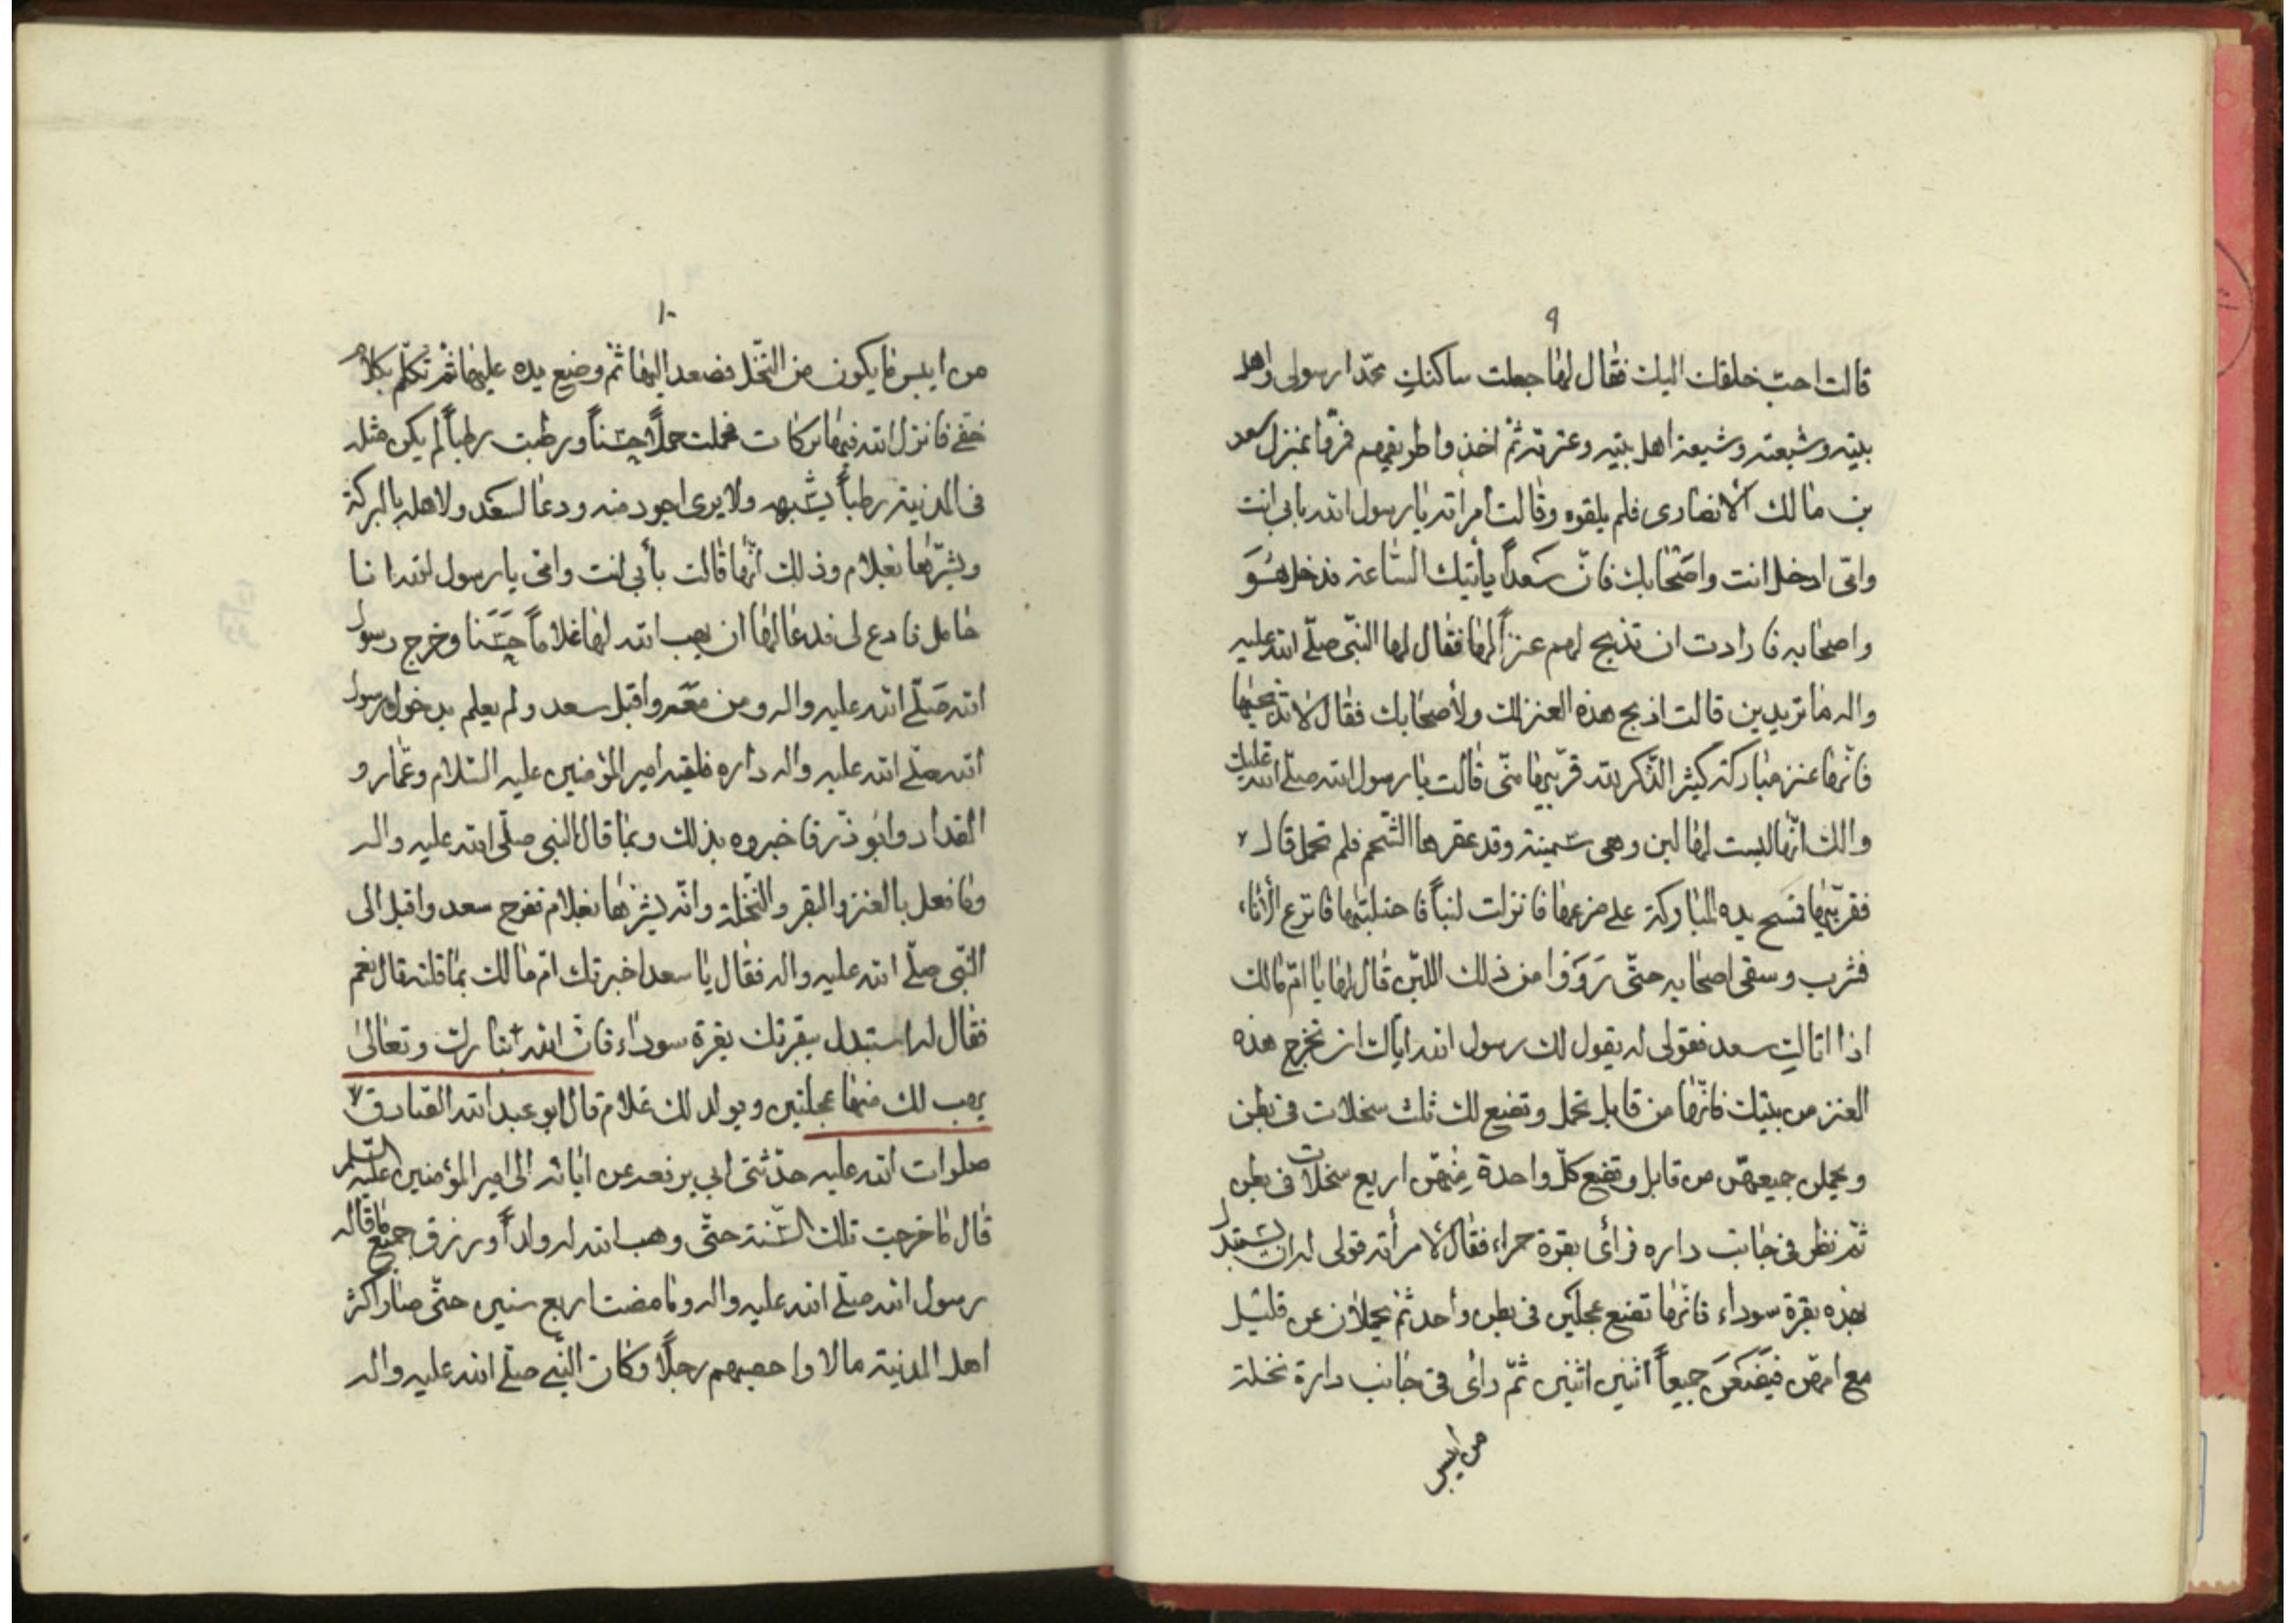 ٩
قالت احبّ خلقك اليك فقال لها جعلت ساكنك محمّدا رسولى واهل
بيته وشيعته وشيعة اهل بيته وعترته ثمّ اخذوا طريقهم فمرّوا بمنزل سعد
بن مالك الأنصارى فلم يلقوه وقالت امراته يا رسول الله بابى انت
وامّى ادخل انت واصحابك فانّ سعداً ياتيك السّاعة فدخل هُوَ
واصحابه فارادت ان تذبح لهم عنزاً لها فقال لها النّبى صلّى الله عليه
واله ما تريدين قالت اذبح هذه العنز لك ولأصحابك فقال لا تذبحيها
فانّها عنز مباركة كثير الذّكر لله قرّبيها منّى قالت يا رسول الله صلّى الله عليك
والك انّها ليست لها لبن وهى سمينة وقد عقرها الشّحم فلم تحمل قال ٧
فقربّيها فمسح يده المباركة على ضرعها فانزلت لنباً فاحتلبتها فاترع الأناء
فشرب وسقى اصحابه حتّى رَوَوا من ذلك اللبن قال لها يا امّ مالك
اذا اتاك سعد فقولى له يقول لك رسول الله ايّاك ان تخرج هذه
العنز من بيتك فانّها من قابل تحمل وتضع لك ثلث سخلات فى بطن
ويحملن جميعهنّ من قابل وتضع كلّ واحدة مِنهنّ اربع سخلات فى بطن
ثمّ نظر فى جانب داره فرأى بقرة حمراء فقال لأمرأته قولى له ان يستبدل
بهذه بقرة سوداء فانّها تضع عجلين فى بطن واحد ثمّ يحملان عن قليل
مع امهنّ فيَضَعَنَ جميعاً اثنين اثنين ثمّ راى فى جانب دارة نخلة
من ايبس
١٠
من ايبس ما يكون من النّخل فصعد اليها ثمّ وضع يده عليها ثمّ تكلّم بكلام
خفى فانزل الله فيها بركات فحملت حملاً حسناً ورطبت رطباً لم يكن مثله
فى المدينة رطباً يشبهه ولا يرى اجود منه ودعا لسعد ولاهله بالبركة
وبشرّها بغلام وذلك انّها قالت بأبى انت وامّى يا رسول الله انا
حامل فادع لى فدعا لها ان يهب الله لها غلاماً حَسَنا وخرج رسول
الله صَلّى الله عليه واله ومن معَهم واقبل سعد ولم يعلم بدخول رسول
الله صلّى الله عليه واله داره فلقيه امير المؤمنين عليه السّلام وعمّار و
المقداد وابو ذرّ فاخبروه بذلك وبما قال النبى صلّى الله عليه واله
وما فعل بالعنز والبقر والنّخلة وانّه بشرّها بغلام ففرح سعد واقبل الى
النّبى صلّى الله عليه واله فقال يا سعد اخبرتك امّ مالك بما قلته قال نعم
فقال له استبدل ببقرتك بقرة سوداء فانّ الله تبارك وتعالى
يهب لك منها عجلتين ويولد لك غلام قال ابو عبد الله الصّادق ٧
صلوات الله عليه حدّثنى ابى يرفعه عن ابائه الى امير المؤمنين عليه السّلم
قال ما خرجت تلك السّنة حتّى وهب الله له ولداً ورزق جميع ما قاله
رسول الله صلّى الله عليه واله وما مضت اربع سنين حتّى صار اكثر
اهل المدينة مالا واخصبهم رجلًا وكان النّبى صلّى الله عليه واله